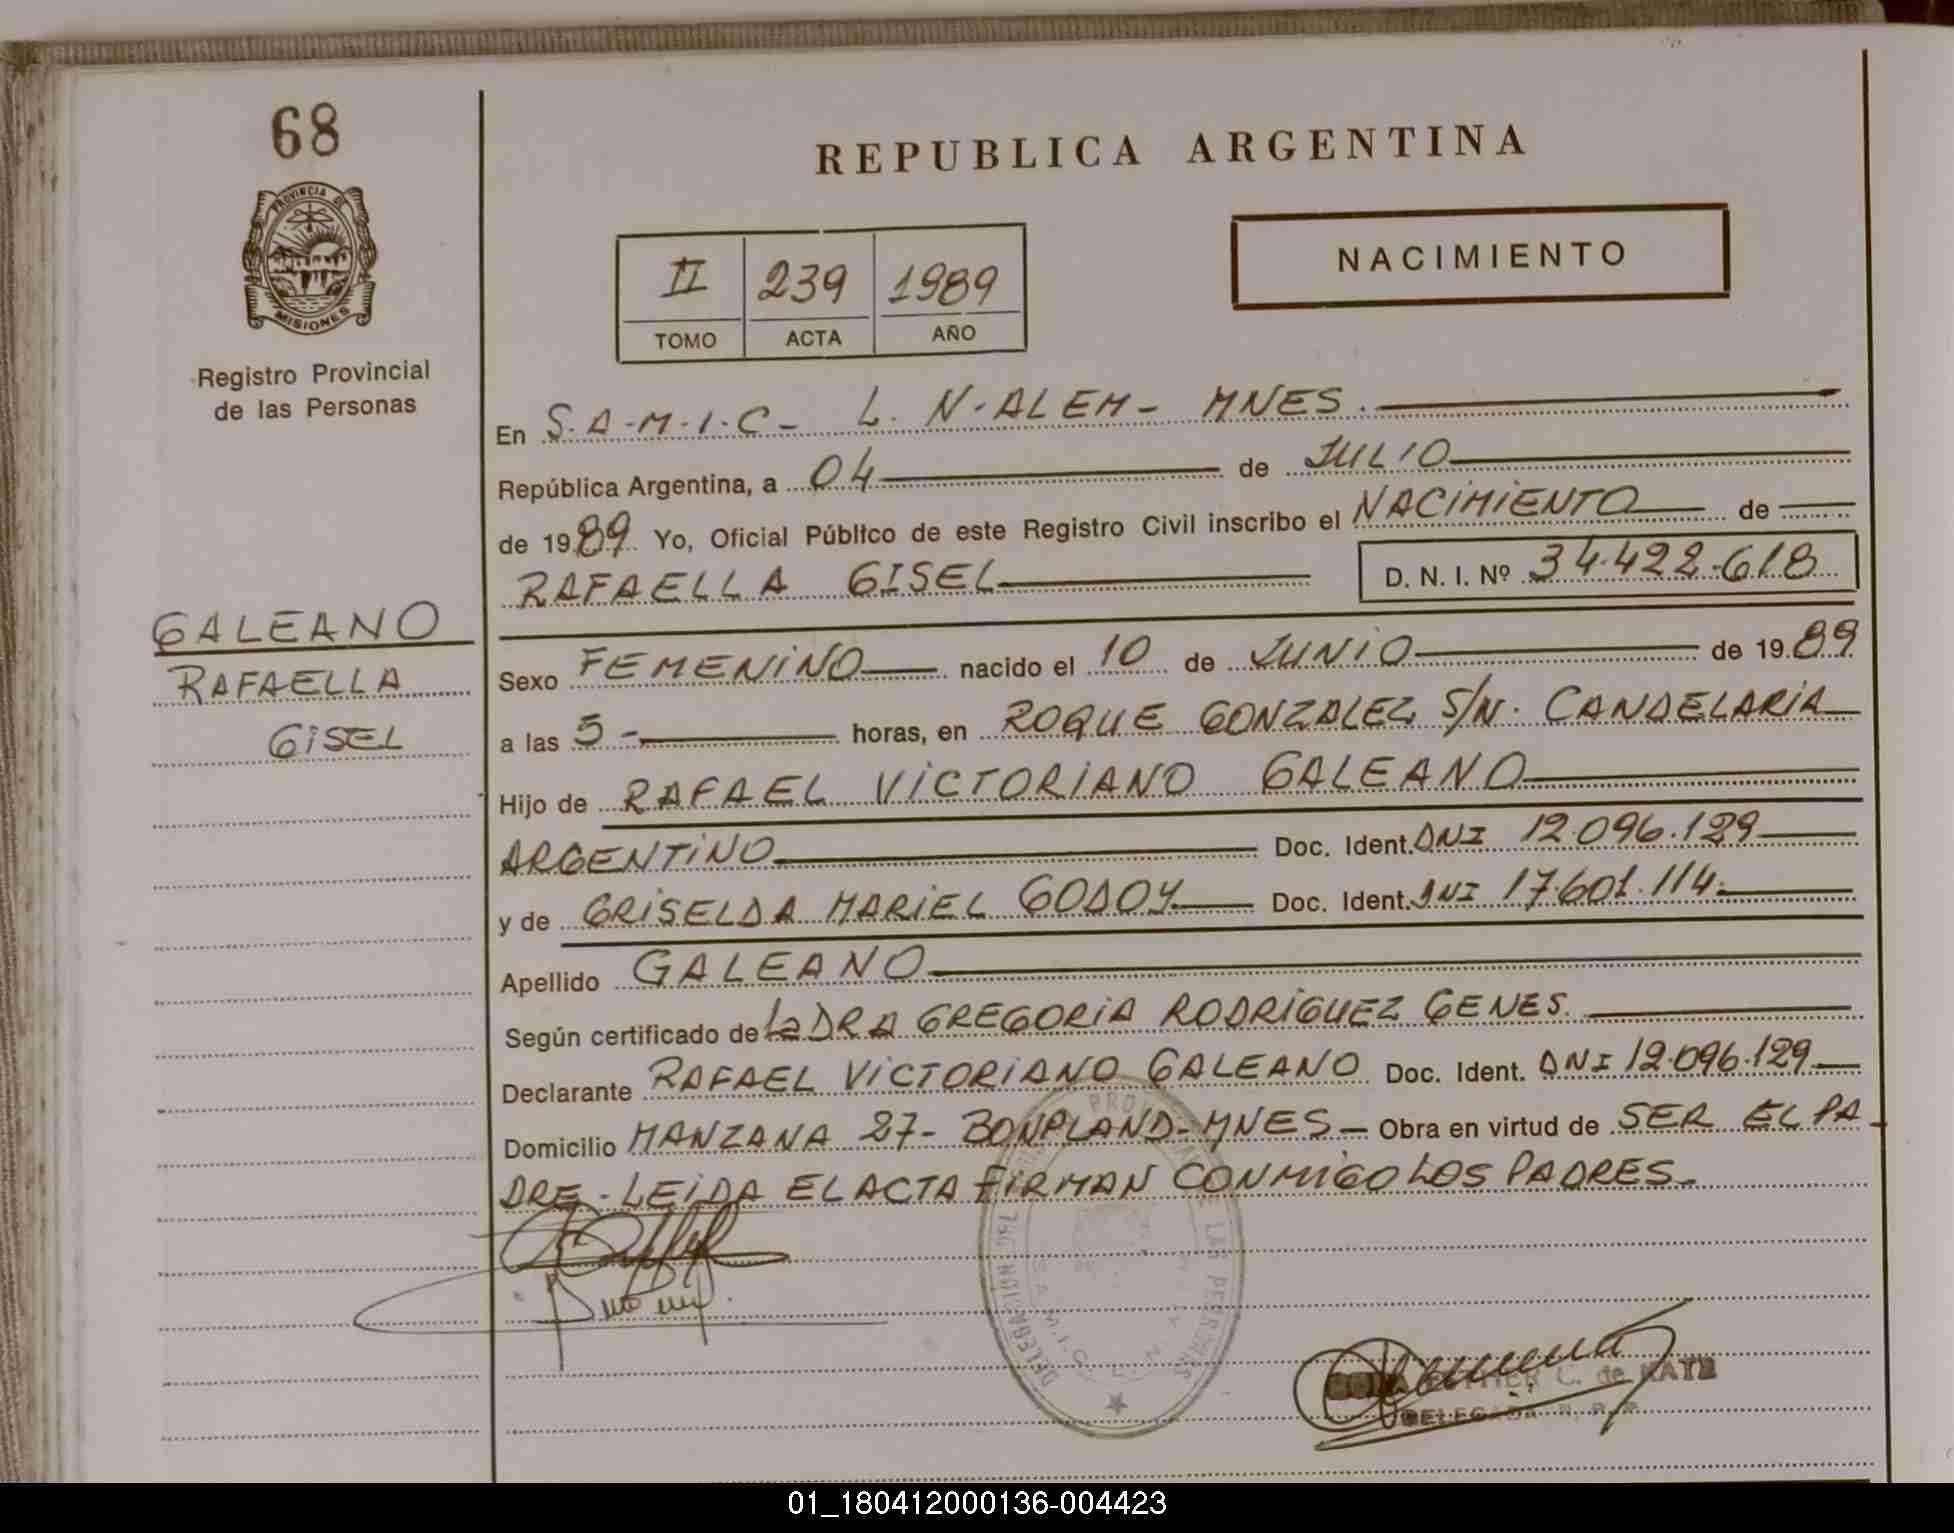 68
PROVINCIA DE
MISIONES
Registro Provincial
de las Personas
GALEANO
RAFAELLA
GISEL
REPUBLICA ARGENTINA
II 239 1989
TOMO ACTA AÑO
NACIMIENTO
En S.A.M.I.C- L. N. ALEM- MNES.
República Argentina, a 04 de JULIO
de 1989 Yo, Oficial Público de este Registro Civil inscribo el NACIMIENTO de
RAFAELLA GISEL D. N. I. Nº 34.422.618
Sexo FEMENINO nacido el 10 de JUNIO de 1989
a las 5- horas, en ROQUE GONZALEZ S/N. CANDELARIA
Hijo de RAFAEL VICTORIANO GALEANO
ARGENTINO Doc. Ident. DNI 12.096.129
y de GRISELDA MARIEL GODOY Doc. Ident. DNI 17.601.114
Apellido GALEANO
Según certificado de la DRA GREGORIA RODRIGUEZ GENES.
Declarante RAFAEL VICTORIANO GALEANO Doc. Ident. DNI 12.096.129
Domicilio MANZANA 27- BONPLAND-MNES- Obra en virtud de SER EL PA
DRE-LEIDA EL ACTA FIRMAN CONMIGO LOS PADRES-
C. de KATZ
DELEGADA R. P. P.
01_180412000136-004423